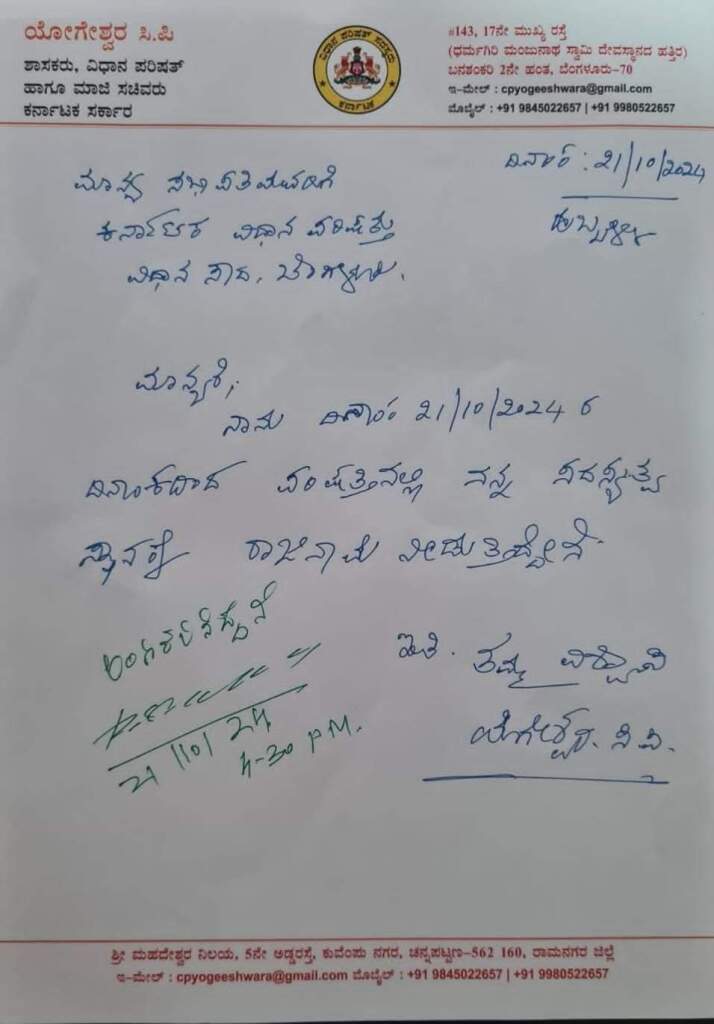 ಯೋಗೇಶ್ವರ ಸಿ.ಪಿ
ಶಾಸಕರು, ವಿಧಾನ ಪರಿಷತ್
ಹಾಗೂ ಮಾಜಿ ಸಚಿವರು
ಕರ್ನಾಟಕ ಸರ್ಕಾರ
ವಿಧಾನ ಪರಿಷತ್ ಸದಸ್ಯರು
ಕರ್ನಾಟಕ
#143, 17ನೇ ಮುಖ್ಯ ರಸ್ತೆ
(ಧರ್ಮಗಿರಿ ಮಂಜುನಾಥ ಸ್ವಾಮಿ ದೇವಸ್ಥಾನದ ಹತ್ತಿರ)
ಬನಶಂಕರಿ 2ನೇ ಹಂತ, ಬೆಂಗಳೂರು-70
ಇ-ಮೇಲ್ : cpyogeeshwara@gmail.com
ಮೊಬೈಲ್ : +91 9845022657 | +91 9980522657
ದಿನಾಂಕ : 21/10/2024
ಹುಬ್ಬಳ್ಳಿ
ಮಾನ್ಯ ಸಭಾಪತಿಯವರಿಗೆ
ಕರ್ನಾಟಕ ವಿಧಾನ ಪರಿಷತ್ತು
ವಿಧಾನ ಸೌಧ, ಬೆಂಗಳೂರು.
ಮಾನ್ಯರೆ,
ನಾನು ದಿನಾಂಕ 21/10/2024 ರ
ದಿನಾಂಕದಿಂದ ಪರಿಷತ್ತಿನಲ್ಲಿ ನನ್ನ ಸದಸ್ಯತ್ವ
ಸ್ಥಾನಕ್ಕೆ ರಾಜಿನಾಮೆ ನೀಡುತ್ತಿದ್ದೇನೆ
ಇತಿ. ತಮ್ಮ ವಿಶ್ವಾಸಿ
ಯೋಗೇಶ್ವರ. ಸಿ.ಪಿ.
ಅಂಗೀಕರಿಸಿದ್ದೇನೆ
21/10/24
4-30 P.M.
ಶ್ರೀ ಮಹದೇಶ್ವರ ನಿಲಯ, 5ನೇ ಅಡ್ಡರಸ್ತೆ, ಕುವೆಂಪು ನಗರ, ಚನ್ನಪಟ್ಟಣ-562 160, ರಾಮನಗರ ಜಿಲ್ಲೆ
ಇ-ಮೇಲ್ : cpyogeeshwara@gmail.com ಮೊಬೈಲ್ : +91 9845022657 | +91 9980522657